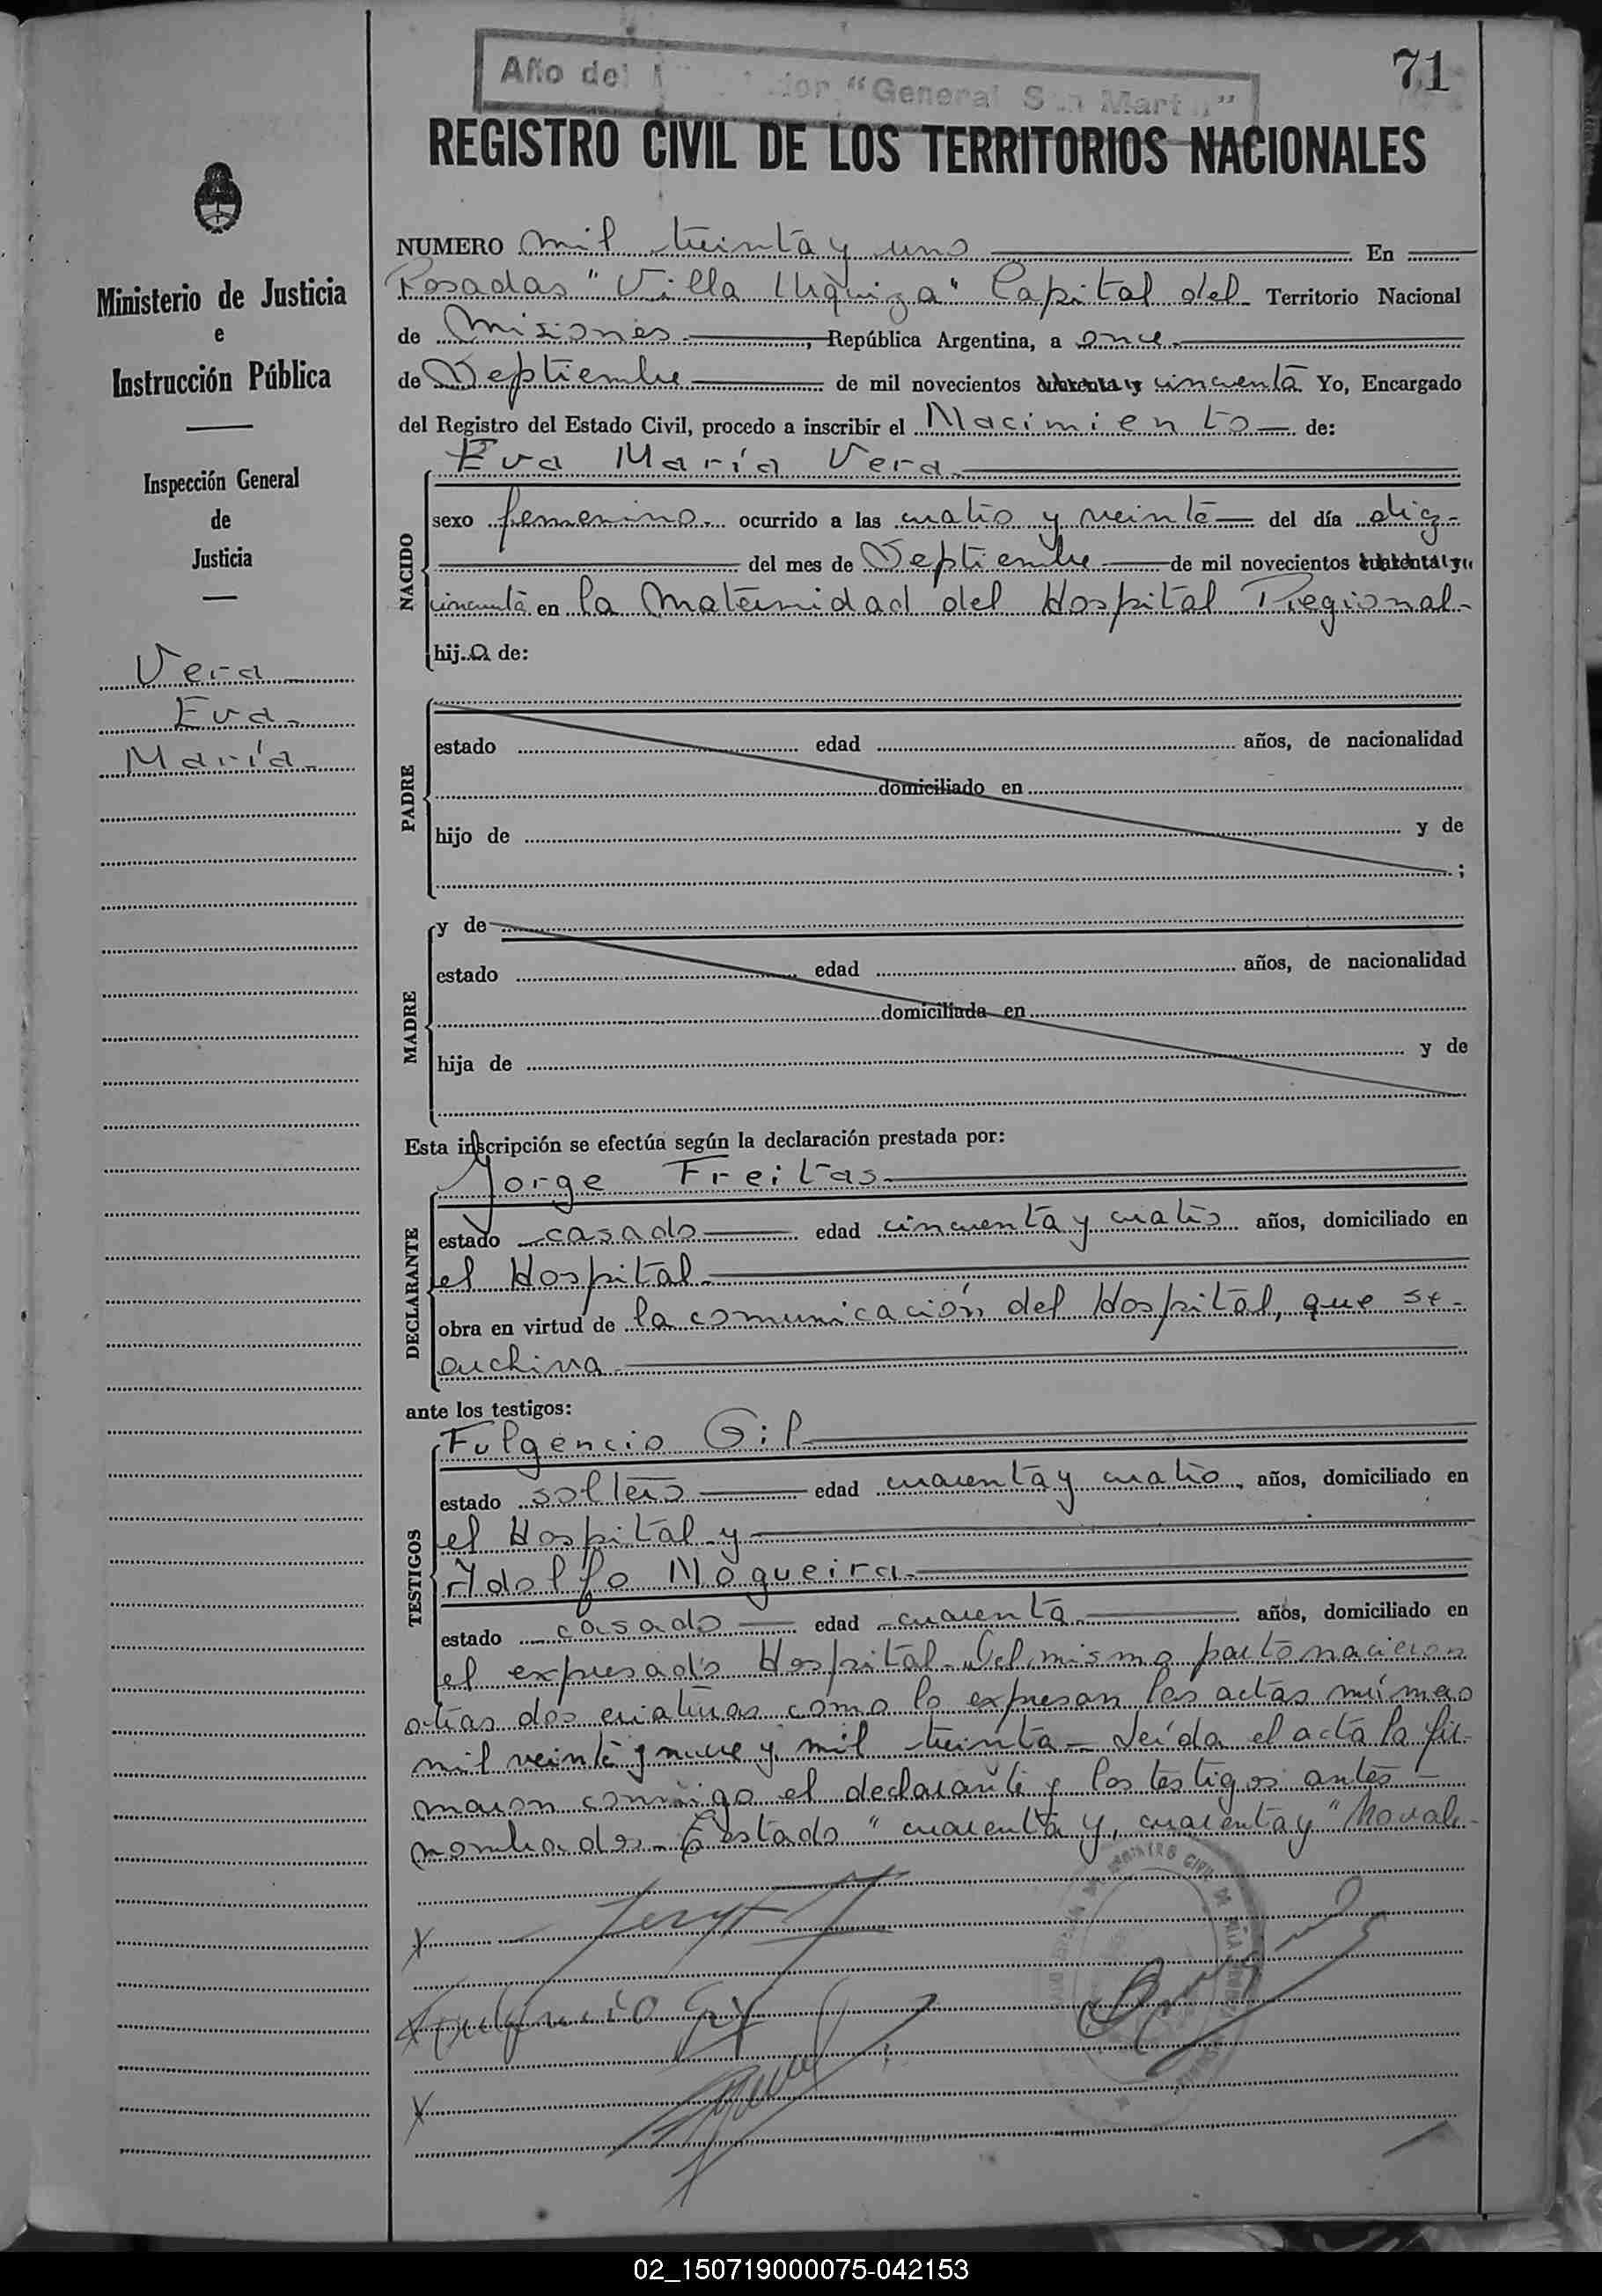 71
Año del "General San Martín"
REGISTRO CIVIL DE LOS TERRITORIOS NACIONALES
Ministerio de Justicia
e
Instrucción Pública
Inspección General
de
Justicia
Vera
Eva
María
NUMERO mil treinta y uno En
Posadas "Villa Urquiza" Capital del Territorio Nacional
de Misiones, República Argentina, a once
de Septiembre de mil novecientos cuarenta y cincuenta Yo, Encargado
del Registro del Estado Civil, procedo a inscribir el Nacimiento de:
NACIDO
Eva María Vera
sexo femenino ocurrido a las cuatro y veinte del día diez
del mes de Septiembre de mil novecientos cuarenta y
cincuenta en la Maternidad del Hospital Regional
hija de:
PADRE
estado edad años, de nacionalidad
domiciliado en
hijo de y de
;
MADRE
y de
estado edad años, de nacionalidad
domiciliada en
hija de y de
Esta inscripción se efectúa según la declaración prestada por:
DECLARANTE
Jorge Freitas
estado casado edad cincuenta y cuatro años, domiciliado en
el Hospital
obra en virtud de la comunicación del Hospital, que se
archiva
ante los testigos:
TESTIGOS
Fulgencio Gil
estado soltero edad cuarenta y cuatro años, domiciliado en
el Hospital y
Adolfo Nogueira
estado casado edad cuarenta años, domiciliado en
el expresado Hospital. Del mismo parto nacieron
otras dos criaturas como lo expresan las actas números
mil veinte y nueve y mil treinta - Leída el acta la fir-
maron conmigo el declarante y los testigos antes
nombrados. Testado "cuarenta y, cuarenta y" No vale
Fulgencio Gil
02_150719000075-042153